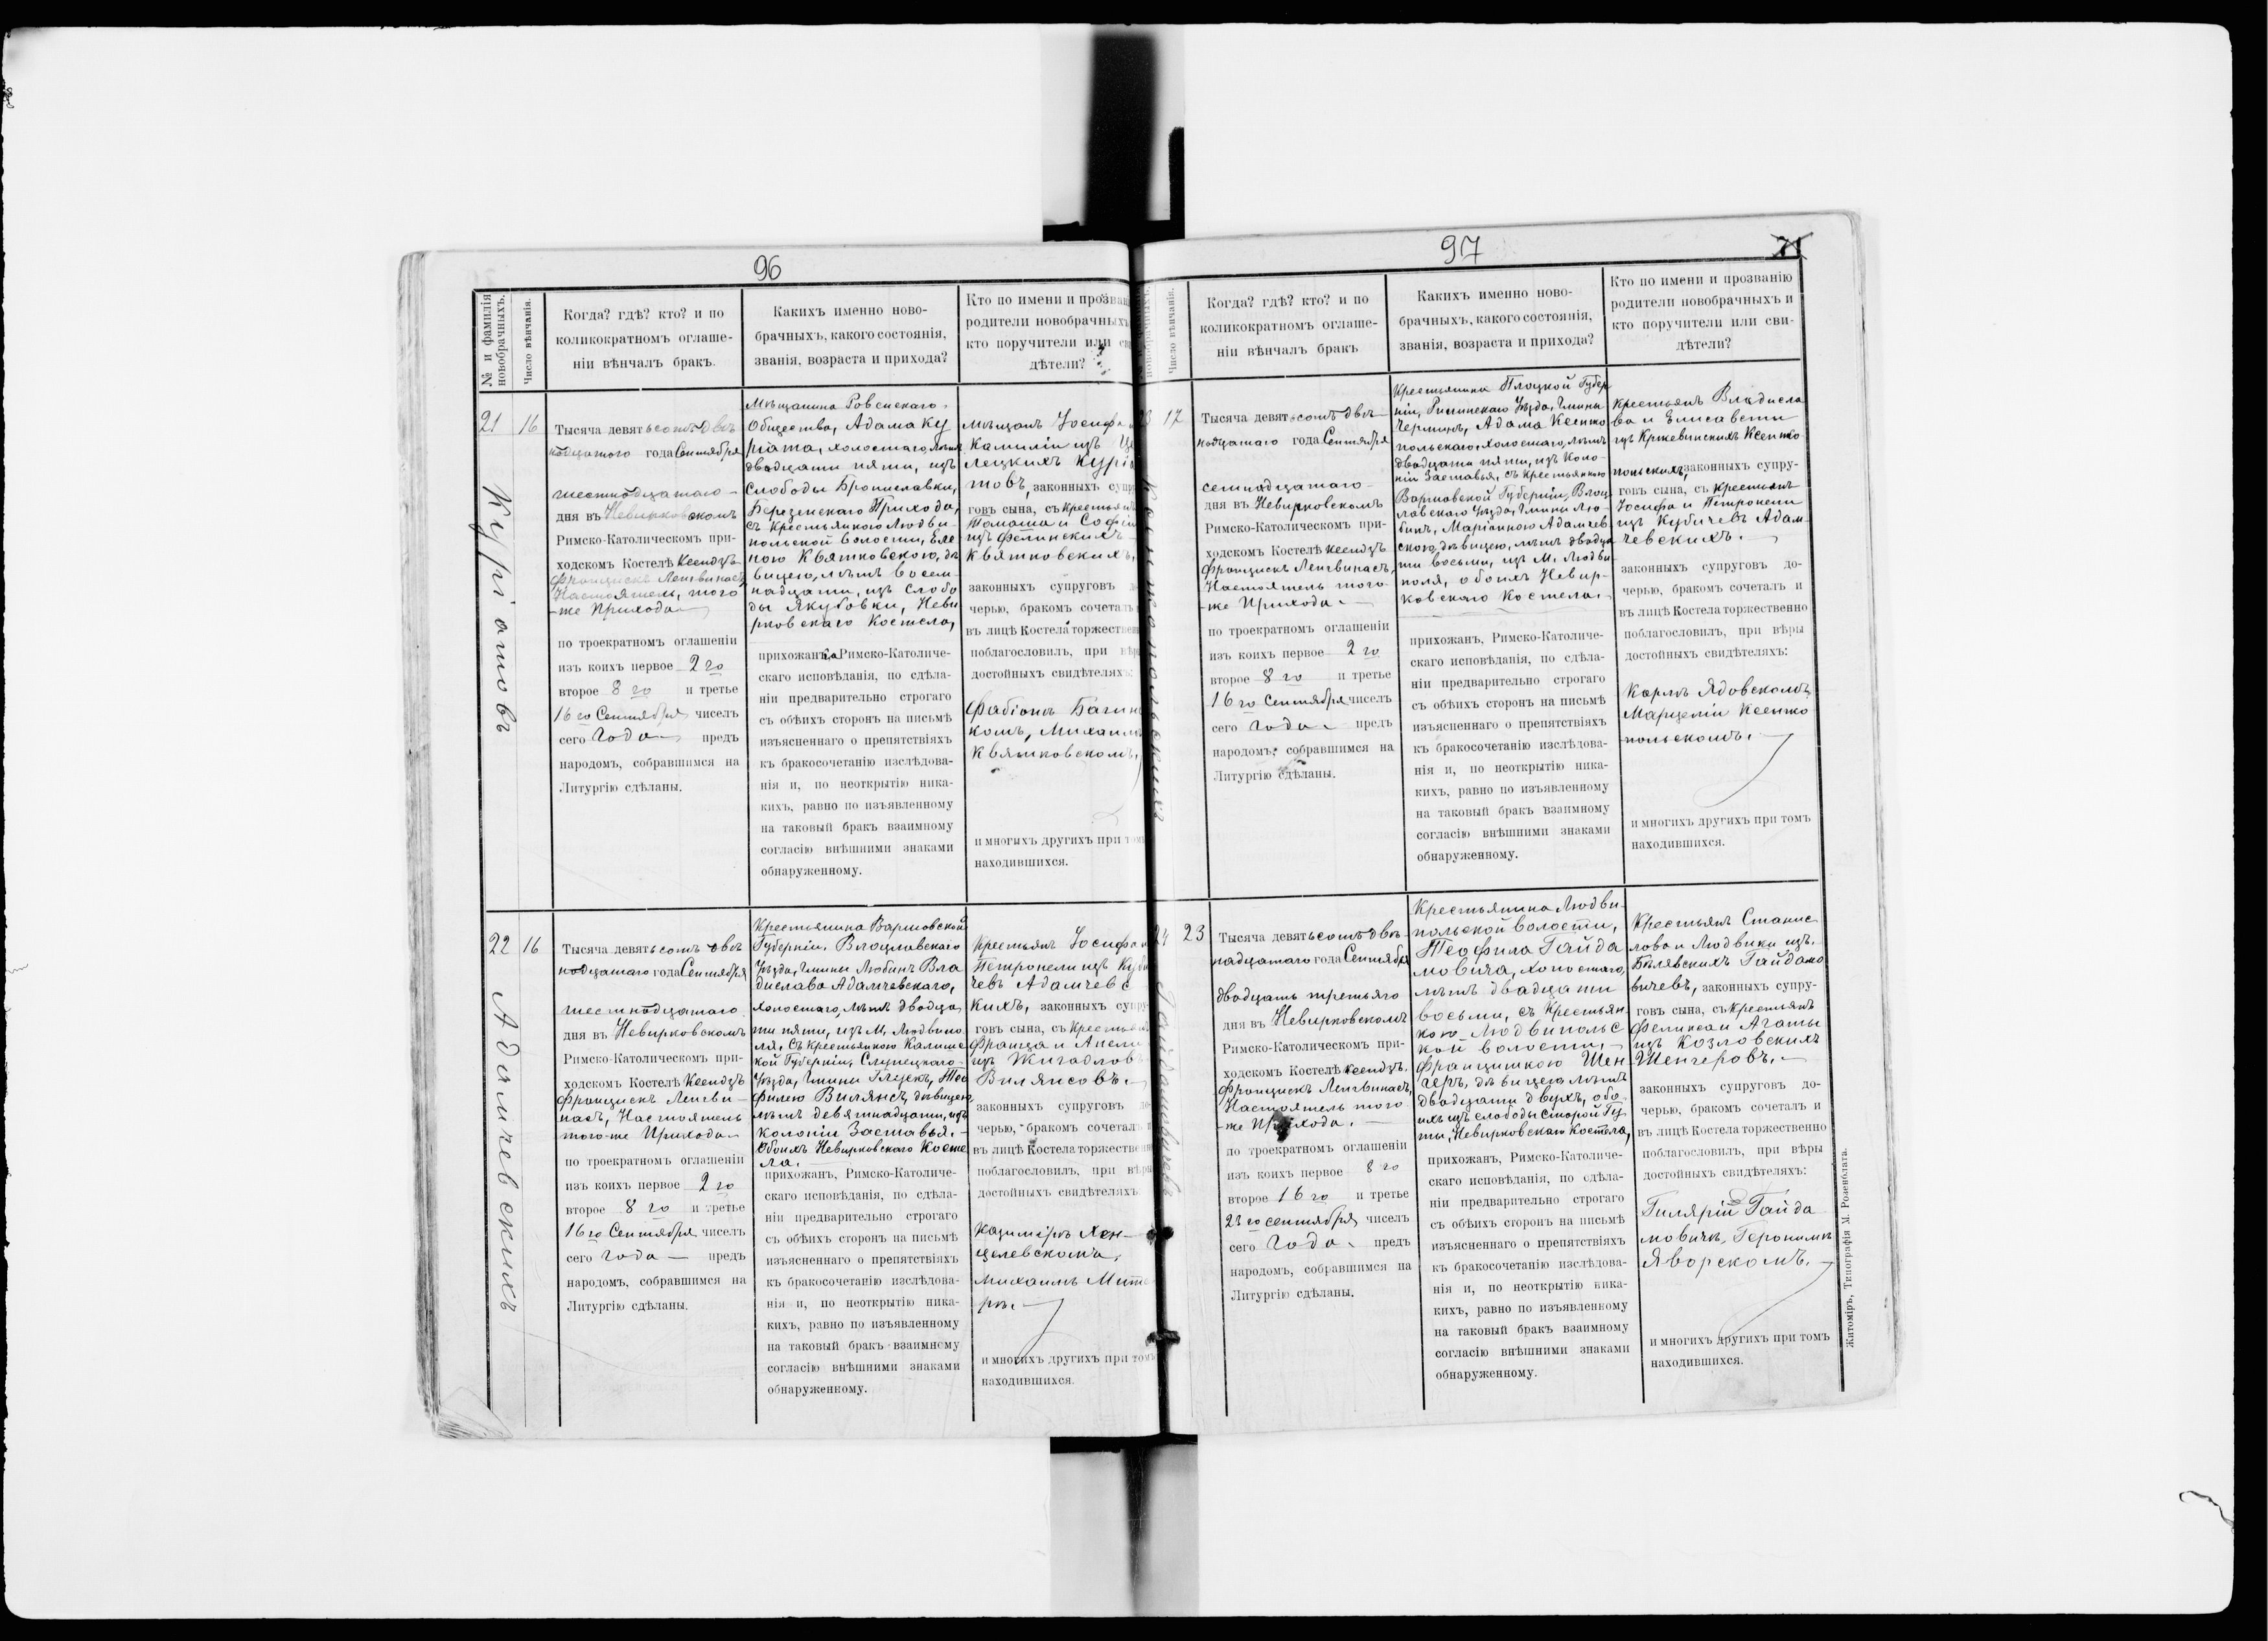 96
№ и фамилія
новобрачныхъ.
Число вѣнчанія.
Когда? гдѣ? кто? и по
коликократномъ оглаше-
ніи вѣнчалъ бракъ.
Какихъ именно ново-
брачныхъ, какого состоянія,
званія, возраста и прихода?
Кто по имени и прозван
родители новобрачныхъ
кто поручители или св
дѣтели?
21
16
Куріатовъ
Тысяча девятьсотъ двѣ
надцатого года Сентября
шестнадцатаго
дня въ Невирковскомъ
Римско-Католическомъ при-
ходскомъ Костелѣ Ксендзъ
Францискъ Ленгвинасъ,
Настоятель того
-же Прихода
по троекратномъ оглашеніи
изъ коихъ первое 2 го
второе 8 го и третье
16 го Сентября чиселъ
сего Года предъ
народомъ, собравшимся на
Литургію сдѣланы.
Мѣщанина Ровенскаго
Общества, Адама Ку
ріата, холостаго, лѣтъ
двадцати пяти, изъ
Слободы Брониславки,
Березенскаго Прихода,
съ крестьянкою Людви-
польской волости, Еле
ною Квятковскою, дѣ
вицею, лѣтъ восем-
надцати, изъ Слобо
ды Якубовки, Неви
рковскаго Костела,
прихожан Римско-Католиче-
скаго исповѣданія, по сдѣла-
ніи предварительно строгаго
съ обѣихъ сторонъ на письмѣ
изъясненнаго о препятствіяхъ
къ бракосочетанію изслѣдова-
нія и, по неоткрытію ника-
кихъ, равно по изъявленному
на таковый бракъ взаимному
согласію внѣшними знаками
обнаруженному.
Мѣщанъ Іосифа
Камиліи изъ
лецкихъ Курія
товъ, законныхъ супр
говъ сына, съ Крестьянъ
Томаша и Софіи
изъ Фелинскихъ
Квятковскихъ,
законныхъ супруговъ
черью, бракомъ сочеталъ
въ лицѣ Костела торжествен
поблагословилъ, при вѣры
достойныхъ свидѣтеляхъ:
Фабіонъ Багин
комъ, Михаиломъ
Квятковскомъ,
и многихъ другихъ при томъ
находившихся.
22
16
Адамчевскихъ
Тысяча девятьсотъ двѣ
надцатаго года Сентября
шестнадцатаго
дня въ Невирковскомъ
Римско-Католическомъ при-
ходскомъ Костелѣ Ксендзъ
Францискъ Ленгви-
насъ, Настоятель
того-же Прихода
по троекратномъ оглашеніи
изъ коихъ первое 2 го
второе 8 го и третье
16 го Сентября чиселъ
сего года — предъ
народомъ, собравшимся на
Литургію сдѣланы.
Крестьянина Варшовской
Губерніи, Влоцлавскаго
Уѣзда, Гмины Любинъ Вла
дислава Адамчевскаго,
холостаго, лѣтъ двадца
ти пяти, изъ М. Людвипо
ля, съ Крестьянкою Калиш
кой Губерніи, Слупецкаго
Уѣзда, Гмины Глускъ, Тео
филею Вилянсъ, дѣвицею
лѣтъ девятнадцати, изъ
Колоніи Заставья.
Обоихъ Невирковскаго Косте
ла.
прихожанъ, Римско-Католиче-
скаго исповѣданія, по сдѣла-
ніи предварительно строгаго
съ обѣихъ сторонъ на письмѣ
изъясненнаго о препятствіяхъ
къ бракосочетанію изслѣдова-
нія и, по неоткрытію ника-
кихъ, равно по изъявленному
на таковый бракъ взаимному
согласію внѣшними знаками
обнаруженному.
Крестьянъ Іосифа и
Петронели изъ Куби
чевъ Адамчевс
кихъ, законныхъ супру
говъ сына, съ Крестьянъ
Франца и Анели
изъ Жигадлов
Вилянсовъ.
законныхъ супруговъ
черью, бракомъ сочеталъ
въ лицѣ Костела торжествен
поблагословилъ, при вѣры
достойныхъ свидѣтеляхъ
Казиміръ Хен-
целевскомъ,
Михаилъ Мит
ръ.
и многихъ другихъ при томъ
находившихся.
97
71
Число вѣнчанія.
Когда? гдѣ? кто? и по
коликократномъ оглаше-
ніи вѣнчалъ бракъ
Какихъ именно ново-
брачныхъ, какого состоянія,
званія, возраста и прихода?
Кто по имени и прозванію
родители новобрачныхъ и
кто поручители или сви-
дѣтели?
23
17
Ксентопольскихъ
Тысяча девятьсотъ двѣ
надцатаго года Сентября
семнадцатаго
дня въ Невирковскомъ
Римско-Католическомъ при-
ходскомъ Костелѣ Ксендзъ
Францискъ Ленгвинасъ,
Настоятель того-
-же Прихода.
по троекратномъ оглашеніи
изъ коихъ первое 2 го
второе 8 го и третье
16 го Сентября чиселъ
сего Года предъ
народомъ, собравшимся на
Литургію сдѣланы.
Крестьянина Плоцкой Губер
ніи, Рипинскаго Уѣзда, Гмины
Черминъ, Адама Ксенто
польскаго, холостаго, лѣтъ
двадцати пяти, изъ Коло-
ніи Заставья, съ Крестьянкою
Варшовской Губерніи, Влоц
лавскаго Уѣзда, Гмины Лю-
бинъ, Маріанною Адамчев
скою, дѣвицею, лѣтъ двадца
ти восьми, изъ М. Людви
поля, обоихъ Невир-
ковскаго Костела,
прихожанъ, Римско-Католиче-
скаго исповѣданія, по сдѣла-
ніи предварительно строгаго
съ обѣихъ сторонъ на письмѣ
изъясненнаго о препятствіяхъ
къ бракосочетанію изслѣдова-
нія и, по неоткрытію ника-
кихъ, равно по изъявленному
на таковый бракъ взаимному
согласію внѣшними знаками
обнаруженному.
Крестьянъ Владисла
ва и Елисавети
изъ Кржевинскихъ Ксенто
польскихъ, законныхъ супру-
говъ сына, съ Крестьянъ
Іосифа и Петронели
изъ Кубичевъ Адам-
чевскихъ.
законныхъ супруговъ до-
черью, бракомъ сочеталъ и
въ лицѣ Костела торжественно
поблагословилъ, при вѣры
достойныхъ свидѣтеляхъ:
Карлъ Ядовскомъ,
Марцеліи Ксенто
польскомъ.
и многихъ другихъ при томъ
находившихся.
24
23
Гайдамовичевъ
Тысяча девятьсотъ двѣ-
надцатаго года Сентября
двадцать третьяго
дня въ Невирковскомъ
Римско-Католическомъ при-
ходскомъ Костелѣ Ксендзъ
Францискъ Ленгвинасъ,
Настоятель того
-же Прихода.
по троекратномъ оглашеніи
изъ коихъ первое 8 го
второе 16 го и третье
23 го сентября чиселъ
сего Года предъ
народомъ, собравшимся на
Литургію сдѣланы.
Крестьянина Людви-
польской волости,
Теофила Гайда
мовича, холостаго,
лѣтъ двадцати
восьми, съ Крестьян
кою Людвипольс
кой волости,
Францишкою Шен
геръ, дѣвицею лѣтъ
двадцати двухъ, обо-
ихъ изъ слободы Старой Гу
ты, Невирковскаго Костела,
прихожанъ, Римско-Католиче-
скаго исповѣданія, по сдѣла-
ніи предварительно строгаго
съ обѣихъ сторонъ на письмѣ
изъясненнаго о препятствіяхъ
къ бракосочетанію изслѣдова-
нія и, по неоткрытію ника-
кихъ, равно по изъявленному
на таковый бракъ взаимному
согласію внѣшними знаками
обнаруженному.
Крестьянъ Станис
лава и Людвики изъ
Бѣлявскихъ Гайдамо
вичевъ, законныхъ супру-
говъ сына, съ Крестьянъ
Феликса и Агаты
изъ Козловскихъ
Шенгеровъ.
законныхъ супруговъ до-
черью, бракомъ сочеталъ и
въ лицѣ Костела торжественно
поблагословилъ, при вѣры
достойныхъ свидѣтеляхъ:
Гилярій Гайда
мовичъ, Геронимъ
Яворскомъ.
и многихъ другихъ при томъ
находившихся.
Житоміръ, Типографія М. Розенблата.